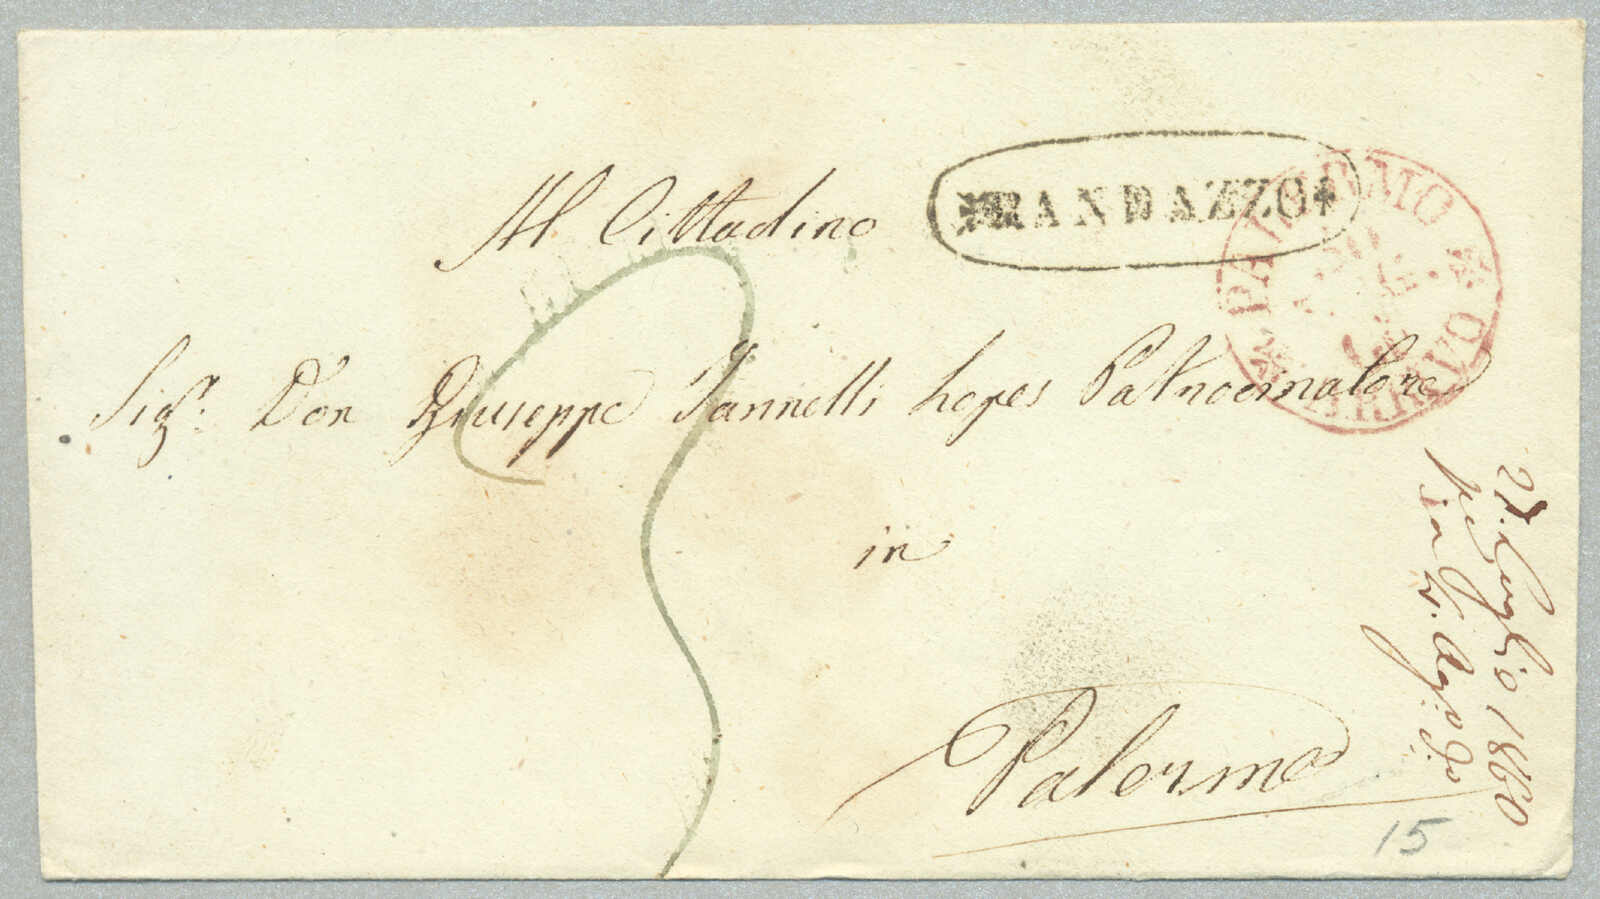 Al Cittadino
*RANDAZZO*
PALERMO
ARRIVO
Sig.r Don Giuseppe Jannelli Lopes Patrocinatore
in
Palermo
27. Luglio 1860
15